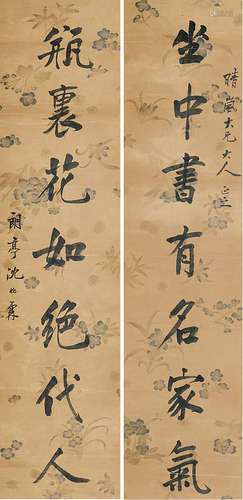 坐中書有名家氣
晴嵐大兄大人正之
瓶裏花如絕代人
朗亭沈兆霖